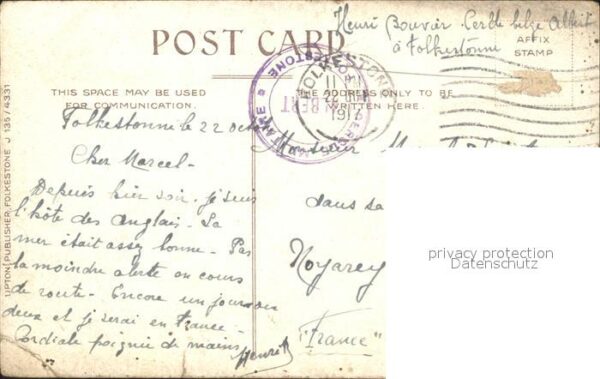 Henri Bouvier Cercle belge Albert
à Folkestonne
POST CARD
AFFIX
STAMP
THIS SPACE MAY BE USED
FOR COMMUNICATION.
THE ADDRESS ONLY TO BE
WRITTEN HERE.
FOLKESTONE
Folkestonne le 22 oct
Cher Marcel-
Depuis hier soir je suis
l'hôte des anglais. La
mer était assez bonne. Pas
la moindre alerte en cours
de route. Encore un jour ou
deux et je serai en France.
Cordiale poignée de mains
Henri
Monsieur
dans sa
Noyarey
"France"
UPTON PUBLISHER, FOLKESTONE J 135/4331
privacy protection
Datenschutz